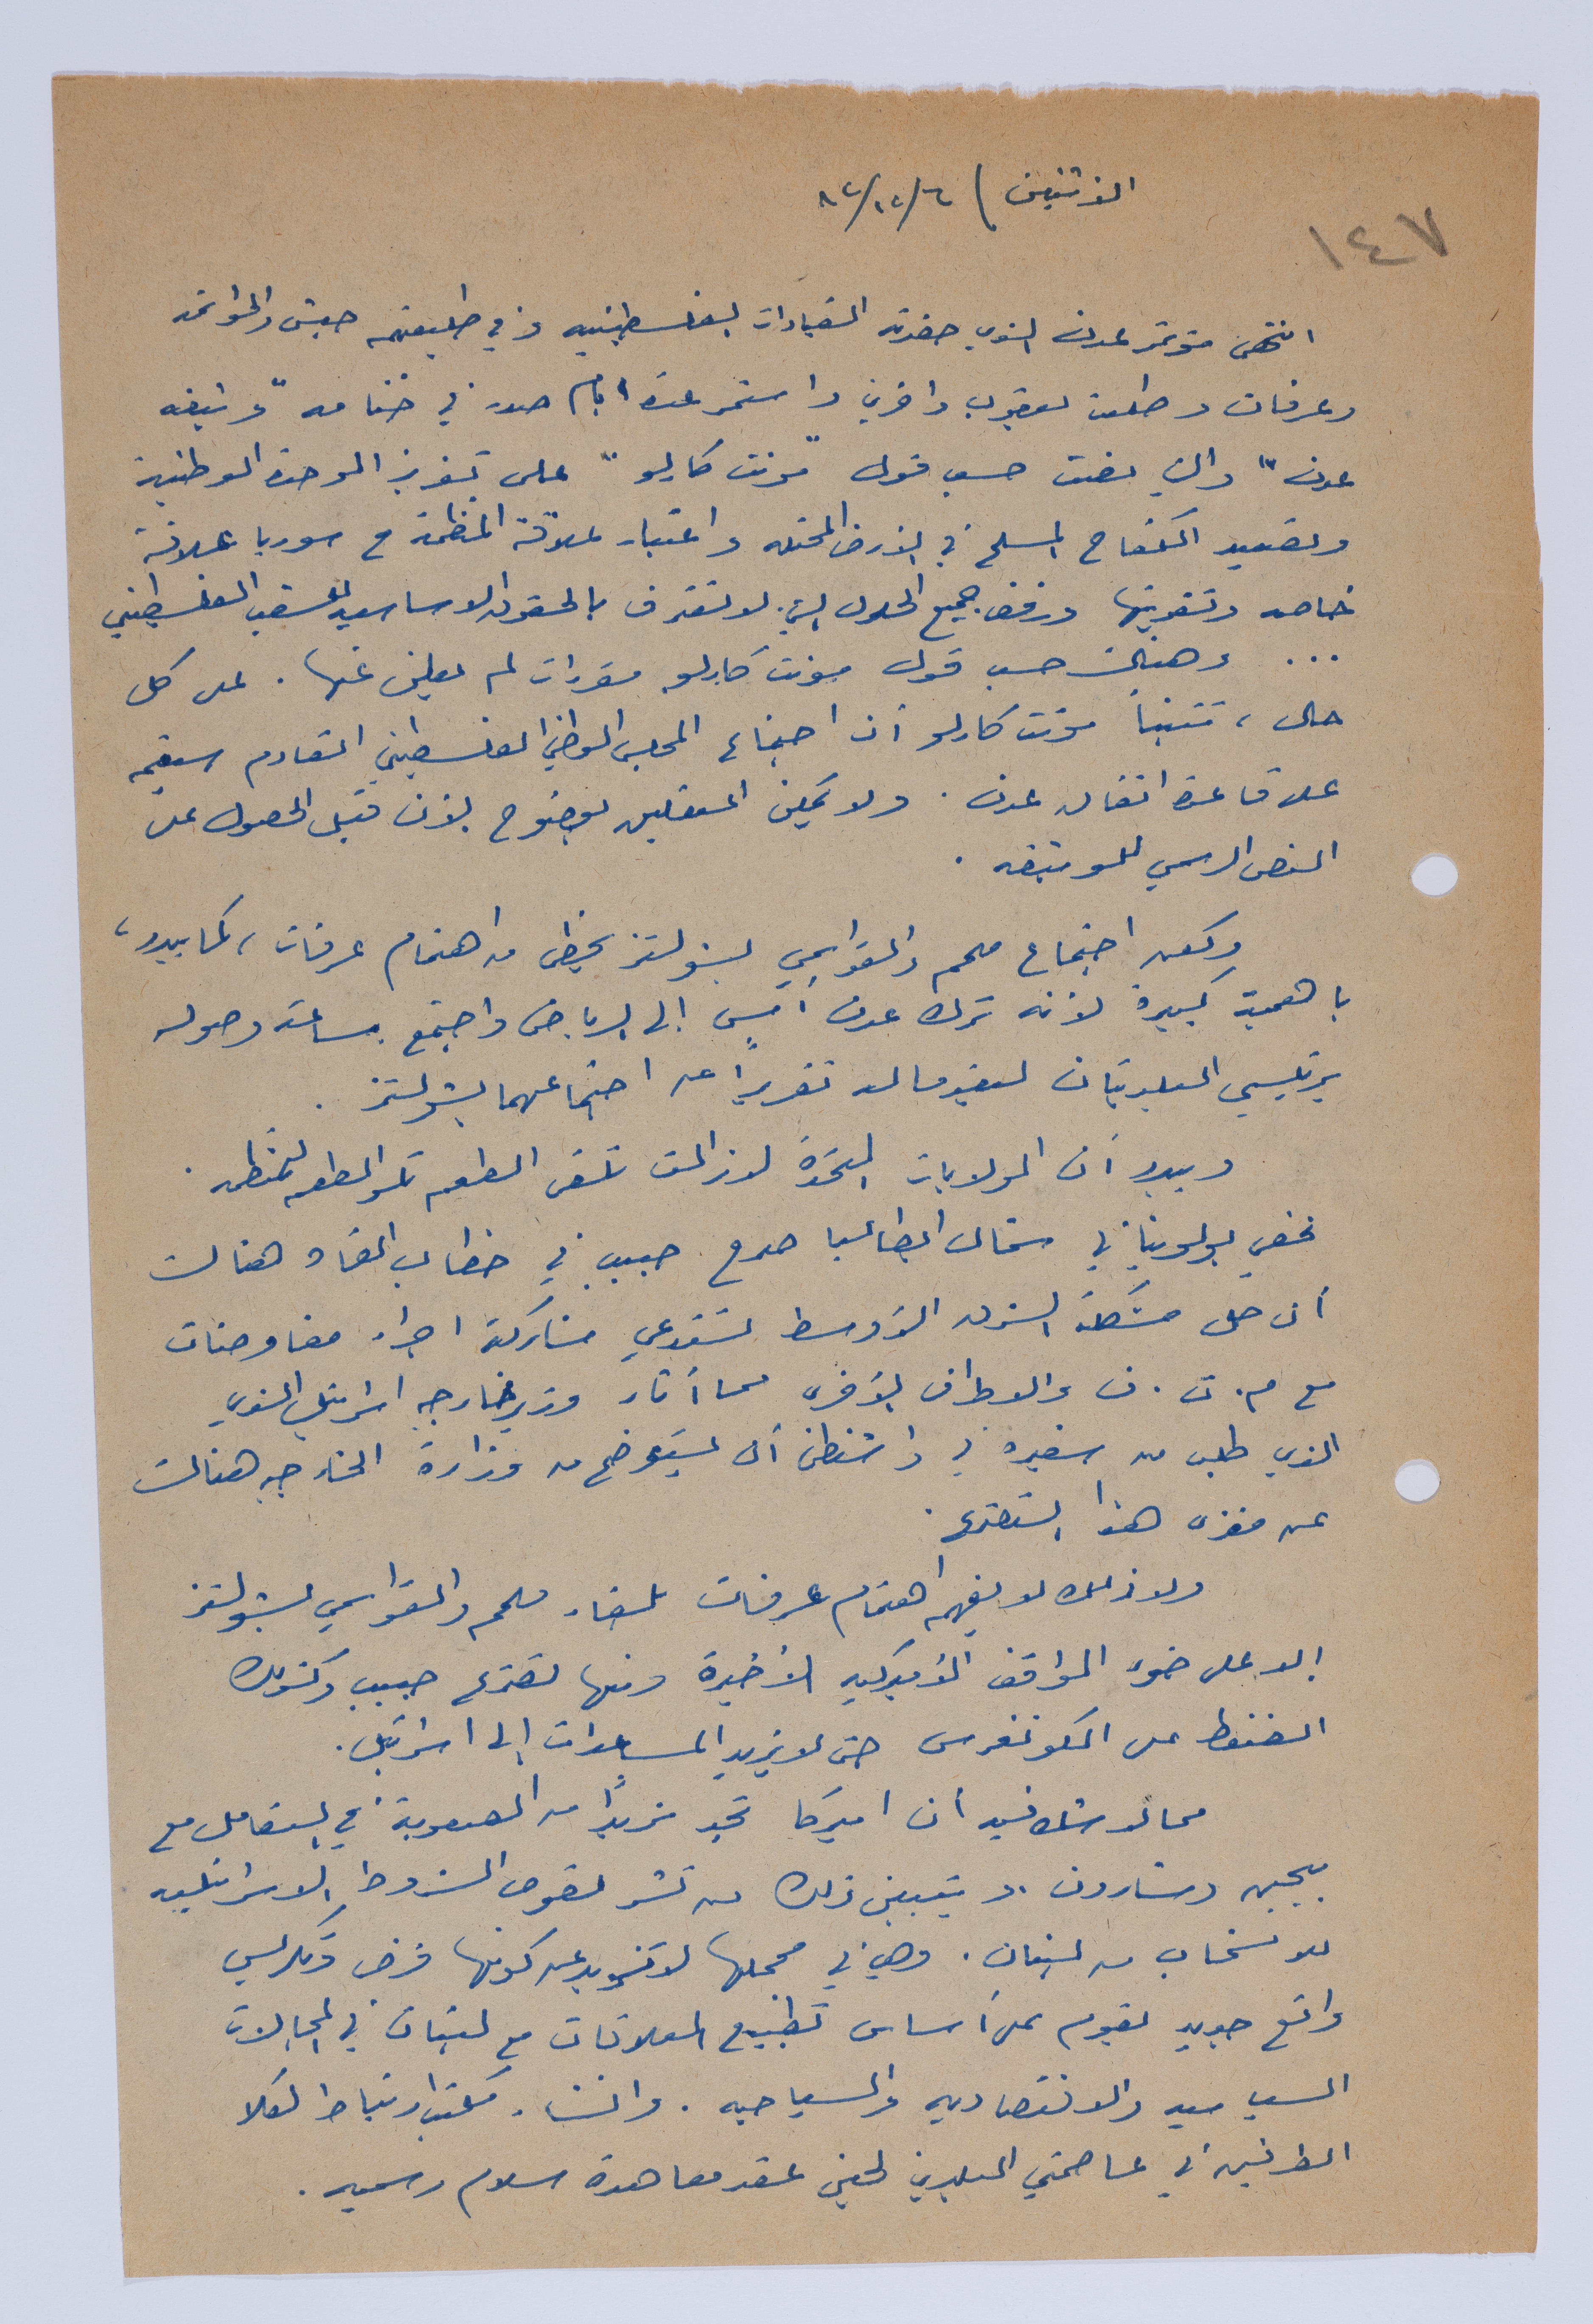 الاثنين / ٦/١٢/٨٢
١٤٧
انتهى مؤتمر عدن الذي حضرته القيادات الفلسطينيه وفي طليعتهم حبش والحواتمه
وعرفات وطلعت يعقوب وآخرين واستمر عدة ايام صدر في ختامه "وثيقه
عدن" والتي نصت حسب قول "مونت كارلو" على تعزيز الوحدة الوطنية
وتصعيد الكفاح المسلح في الأرض المحتله واعتبار علاقة المنظمة مع سوريا علاقة
خاصه وتقويتها ورفض جميع الحلول التي لا تعترف بالحقوق الاساسيه للشعب الفلسطيني
... وهنالك حسب قول مونت كارلو مقررات لم يعلن عنها. على كل
حال، تتنبأ مونت كارلو أن اجتماع المجلس الوطني الفلسطيني القادم سيتم
على قاعدة اتفاق عدن. ولا يمكن التعليق بوضوح الآن قبل الحصول على
النص الرسمي للوثيقه.
ولكن اجتماع ملحم والقواسمي بشولتز يحظى من اهتمام عرفات، كما يبدو،
بأهمية كبيرة لأنه ترك عدن أمس إلى الرياض واجتمع ساعة وصوله
برئيسي البلديتان ليقدما له تقريرًا عن اجتماعهما بشولتز.
ويبدو أن الولايات المتحدة لا زالت تلقى الطعم تلو الطعم للمنظمه.
ففي بولونيا في شمال ايطاليا صرح حبيب في خطاب القاه هنالك
أن حل مشكلة الشرق الأوسط تستدعي مشاركة اجراء مفاوضات
مع م. ت. ف والاطراف الأخرى مما أثار وزير خارجيه اسرائيل الذي
الذي طلب من سفيره في واشنطن أن يستوضح من وزارة الخارجيه هنالك
عن مغزى هذا التصريح.
ولذلك لا يفهم اهتمام عرفات بلقاء ملحم والقواسمي بشولتز
إلا على ضوء المواقف الأميركيه الأخيرة ومنها تصريح حبيب وكذلك
الضغط على الكونغرس حتى لا يزيد المساعدات إلى اسرائيل.
مما لا شك فيه أن اميركا تجد مزيدًا من الصعوبة في التعامل مع
بيجين وشارون. ويتبين ذلك من نشر نصوص الشروط الاسرائيليه
للانسحاب من لبنان. وهي في مجملها لا تزيد عن كونها فرض وتكريس
واقع جديد يقوم على أساس تطبيع العلاقات مع لبنان في المجالات
السياسيه والاقتصاديه والسياحيه. وانشاء مكتب ارتباط لكلا
الطرفين في عاصمتي البلدين لحين عقد معاهدة سلام رسميه.